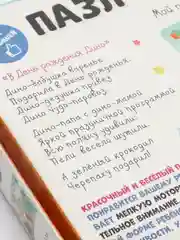 ПАЗЛ
Мой п
«В День рождения Дино»
Дино-бабушка варенье
Подарила в День рожденья.
Дино-дедушка привёз
Дино чудо-паровоз.
Дино-папа с дино-мамой
Яркой праздничной программой
Всю толпу удивили:
Пели весело шутили.
А зелёный крокодил
Черепаху подарил!
КРАСОЧНЫЙ И ВЕСЁЛЫЙ П
ПОНРАВИТСЯ ВАШЕМУ
ВАЕТ МЕЛКУЮ МОТОР
ТЕЛЬНОЕ ВНИМАНИЕ.
ФОРМЕ РЕБЁН